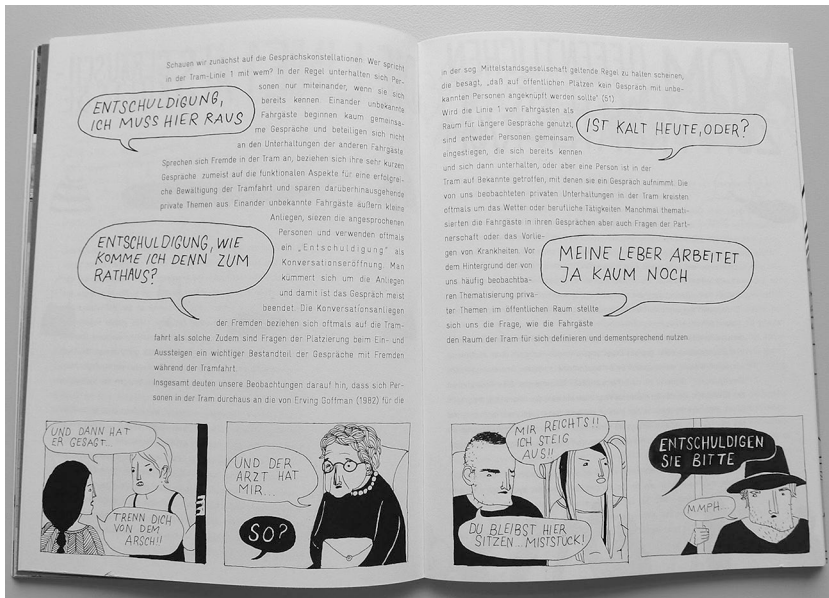 Schauen wir zunächst auf die Gesprächskonstellationen: Wer spricht
in der Tram-Linie 1 mit wem? In der Regel unterhalten sich Per-
sonen nur miteinander, wenn sie sich
bereits kennen. Einander unbekannte
Fahrgäste beginnen kaum gemeinsa-
me Gespräche und beteiligen sich nicht
an den Unterhaltungen der anderen Fahrgäste.
ENTSCHULDIGUNG,
ICH MUSS HIER RAUS
Sprechen sich Fremde in der Tram an, beziehen sich ihre sehr kurzen
Gespräche zumeist auf die funktionalen Aspekte für eine erfolgrei-
che Bewältigung der Tramfahrt und sparen darüberhinausgehende
private Themen aus. Einander unbekannte Fahrgäste äußern kleine
Anliegen, siezen die angesprochenen
Personen und verwenden oftmals
ein „Entschuldigung" als
Konversationseröffnung. Man
kümmert sich um die Anliegen
und damit ist das Gespräch meist
beendet. Die Konversationsanliegen
ENTSCHULDIGUNG, WIE
KOMME ICH DENN ZUM
RATHAUS?
der Fremden beziehen sich oftmals auf die Tram-
fahrt als solche. Zudem sind Fragen der Platzierung beim Ein- und
Aussteigen ein wichtiger Bestandteil der Gespräche mit Fremden
während der Tramfahrt.
Insgesamt deuten unsere Beobachtungen darauf hin, dass sich Per-
sonen in der Tram durchaus an die von Erving Goffman (1982) für die
UND DANN HAT
ER GESAGT...
TRENN DICH
VON DEM
ARSCH!!
UND DER
ARZT HAT
MIR...
SO?
in der sog. Mittelstandsgesellschaft geltende Regel zu halten scheinen,
die besagt, „daß auf öffentlichen Plätzen kein Gespräch mit unbe-
kannten Personen angeknüpft werden sollte" (51)
Wird die Linie 1 von Fahrgästen als
Raum für längere Gespräche genutzt,
sind entweder Personen gemeinsam
eingestiegen, die sich bereits kennen
IST KALT HEUTE, ODER?
und sich dann unterhalten, oder aber eine Person ist in der
Tram auf Bekannte getroffen, mit denen sie ein Gespräch aufnimmt. Die
von uns beobachteten privaten Unterhaltungen in der Tram kreisten
oftmals um das Wetter oder berufliche Tätigkeiten. Manchmal themati-
sierten die Fahrgäste in ihren Gesprächen aber auch Fragen der Part-
nerschaft oder das Vorlie-
gen von Krankheiten. Vor
dem Hintergrund der von
uns häufig beobachtba-
ren Thematisierung priva-
ter Themen im öffentlichen Raum stellte
MEINE LEBER ARBEITET
JA KAUM NOCH
sich uns die Frage, wie die Fahrgäste
den Raum der Tram für sich definieren und dementsprechend nutzen.
MIR REICHTS!!
ICH STEIG
AUS!!
DU BLEIBST HIER
SITZEN... MISTSTÜCK!
ENTSCHULDIGEN
SIE BITTE
MMPH...